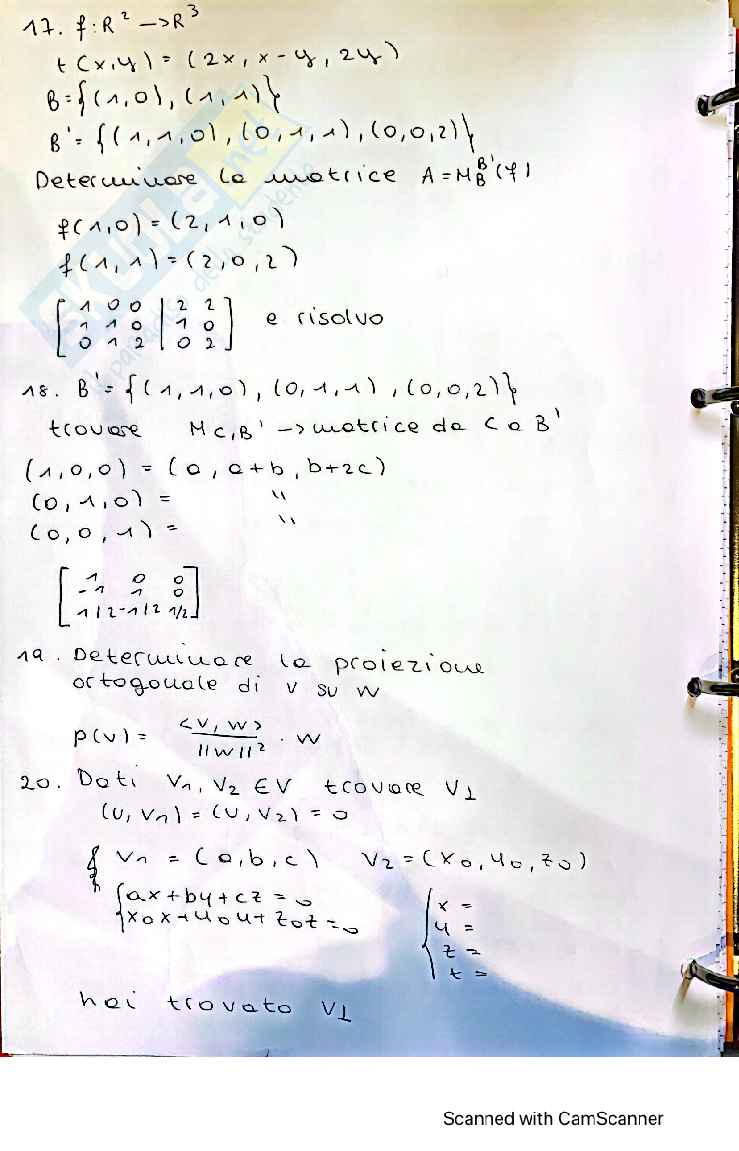 17. f: R² —> R³
f(x,y) = (2x, x-y, 2y)
B={(1,0), (1,1)}
B'= {(1,1,0), (0,1,1), (0,0,2)}
Determinare la matrice A = M_B^B'(f)
f(1,0) = (2,1,0)
f(1,1) = (2,0,2)
[ 1 0 0 | 2 2
1 1 0 | 1 0
0 1 2 | 0 2 ] e risolvo
18. B'= {(1,1,0), (0,1,1), (0,0,2)}
trovare M C,B' —> matrice da C a B'
(1,0,0) = (a, a+b, b+2c)
(0,1,0) = "
(0,0,1) = "
[ 1 0 0
-1 1 0
1/2 -1/2 1/2 ]
19. Determinare la proiezione
ortogonale di v su w
p(v) = <v, w> / ||w||² · w
20. Dati v1, v2 ∈ V trovare V⊥
(u, v1) = (u, v2) = 0
v1 = (a,b,c) v2 = (x0, y0, z0)
{ ax+by+cz = 0
x0x+y0y+z0z = 0
{ x =
y =
z =
t =
hai trovato V⊥
SKUOLA.net
Scanned with CamScanner